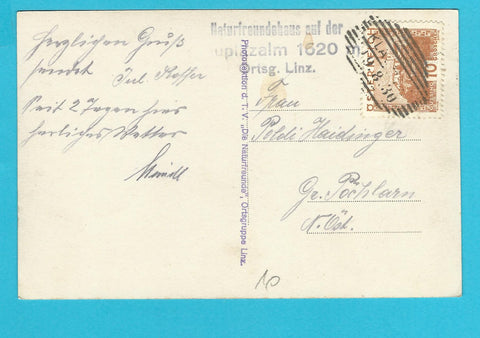 Herzlichen Gruß
sendet
Jul.
Seit 2 Tagen hier
herliches Wetter
Naturfreundehaus auf der
alm 1620 m
Ortsg. Linz.
Photosektion d. T. V. „Die Naturfreunde", Ortsgruppe Linz.
Frau
Poldi Haidinger
Gr. Pöchlarn
N. Öst.
10
10